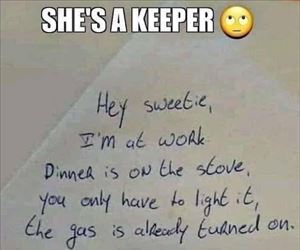 SHE'S A KEEPER 🙄
Hey sweetie,
I'm at work
Dinner is on the stove,
you only have to light it,
the gas is already turned on.